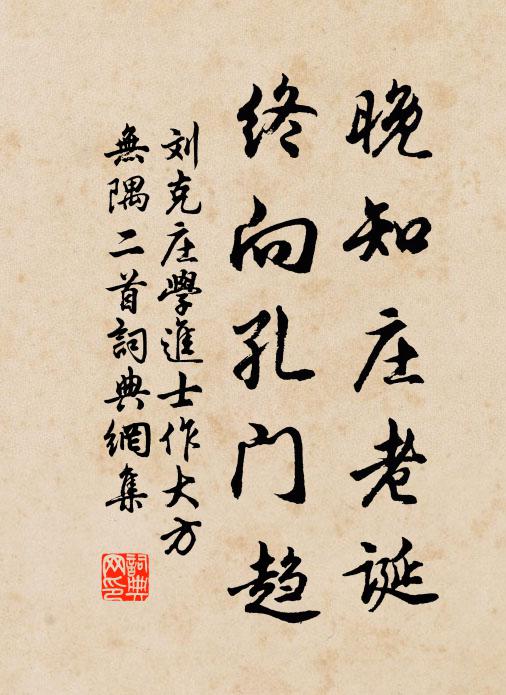 晚知庄老诞
终向孔门趋
刘克庄學進士作大方
無隅二首詞典網集
詞典网印